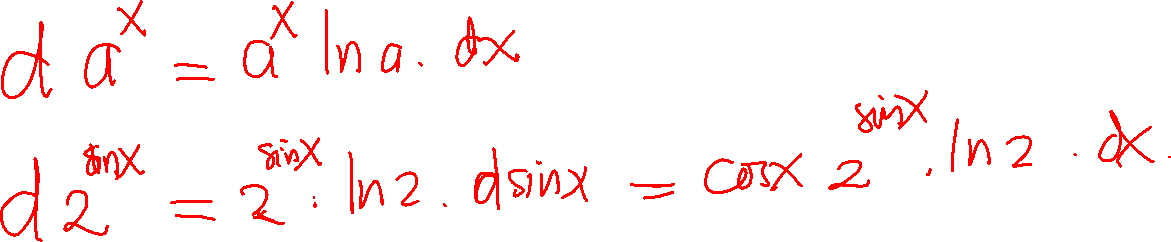 d a^x = a^x ln a. dx
d 2^sinx = 2^sinx . ln 2 . d sinx = cosx 2^sinx . ln 2 . dx.